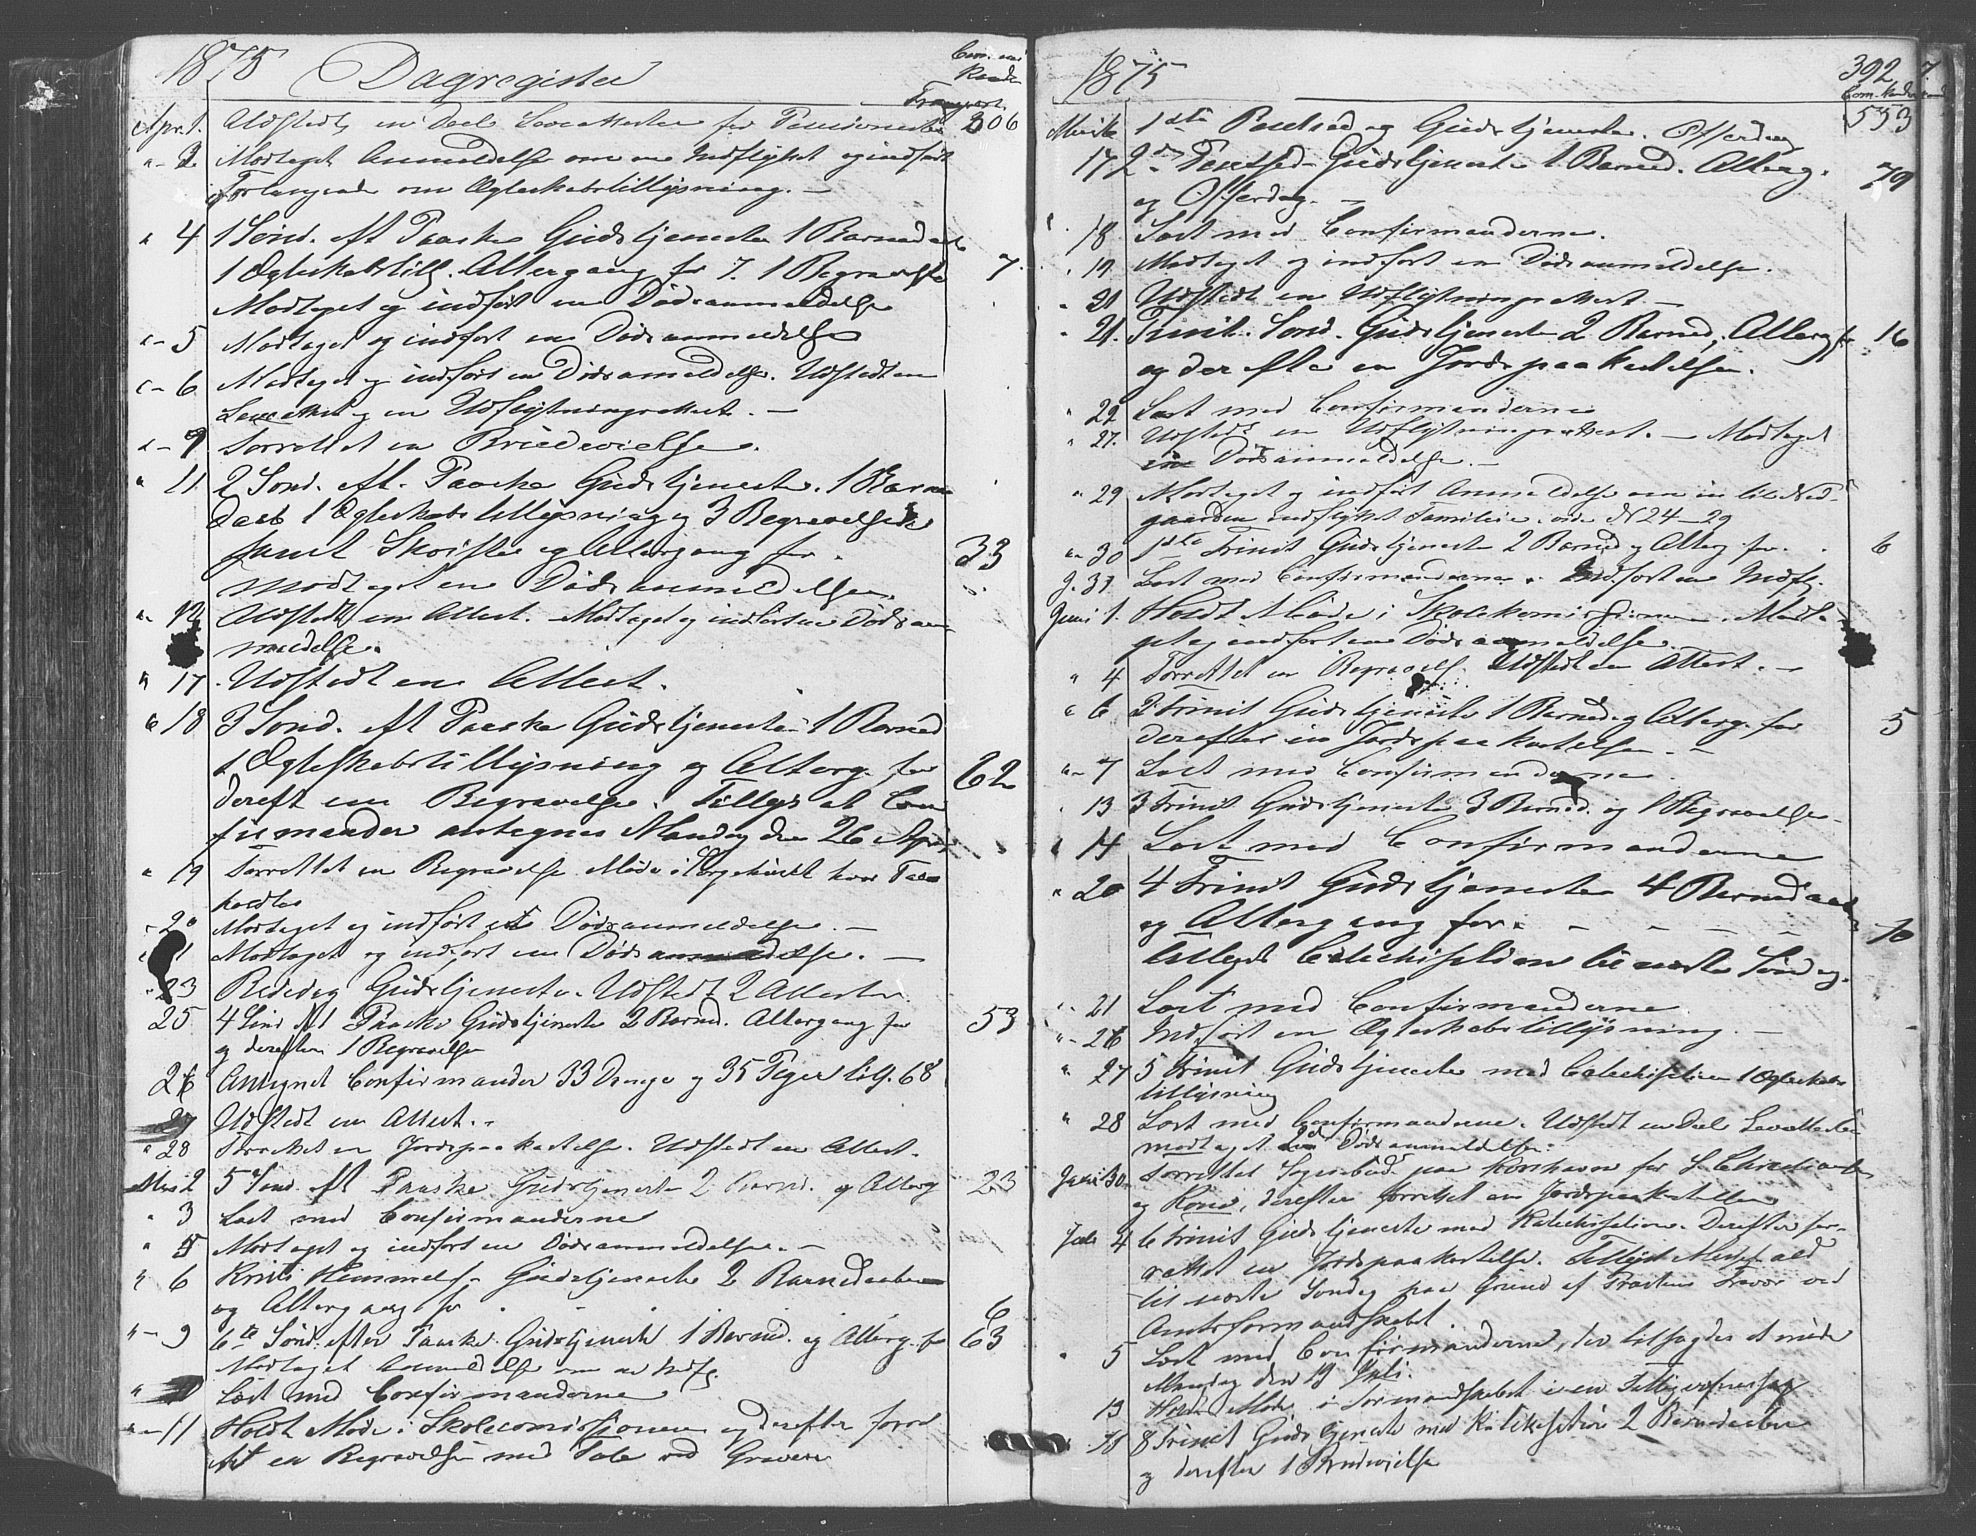 1875 Dagregister
Transport
Apr. 1. Udstedt, en Deel Leveattester for Pensionister 306
" 2 Modtaget Anmeldelse om en Indflyttet og indført
Forlangende om Ægteskabstillysning. —
" 4 1 Sønd. eft Paaske Gudstjeneste 1 Barnedaab
1 Ægteskabstill. Altergang for 7. 1 Begravelse 7.
Modtaget og indført en Dødsanmeldelse
" 5 Modtaget og indført en Dødsanmeldelse
" 6 Modtaget og indført en Dødsanmeldelse. Udstedt en
Leveattest og en Udflytningsattest. —
" 9 Forrettet en Brudevielse.
" 11. 2 Sønd. eft. Paaske Gudstjeneste. 1 Barne
daab 1 Ægteskabstillysning og 3 Begravelser
samt Skrifte og Altergang for . 33
Modtaget en Dødsanmeldelse.
" 12 Udstedt en Attest. — Modtaget og indført en Dødsan-
meldelse.
" 17 Udstedt en Attest.
" 18 3 Sønd. eft Paaske Gudstjeneste 1 Barned
1 Ægteskabstillysning og Alterg. for 62
dereft en Begravelse. Tillyst at Con
firmander antegnes Mandag den 26 April
" 19 Forrettet en Begravelse Møde i
holdtes
" 20 Modtaget og indført en Dødsanmeldelse. —
Modtaget og indført en Dødsanmeldelse. —
" 23 Bededag Gudstjeneste. Udstedt 2 Attester
25 4 Sønd eft Paaske Gudstjeneste 2 Barned. Altergang for 53
og derefter 1 Begravelse
26 Antegnet Confirmander 33 Drenge og 35 Piger tils. 68
27 Udstedt en Attest. -
" 28 Forrettet en Jordspaakastelse. Udstedt en Attest.
Mai 2 5 Sønd. eft Paaske Gudstjeneste 2 Barned. og Alterg 23
" 3 Læst med Confirmanderne
" 5 Modtaget og indført en Dødsanmeldelse. —
" 6 Kristi Himmelf. Gudstjeneste 2 Barnedaaber
og Altergang for 6
" 9 6te Sønd. efter Paaske Gudstjeneste 1 Barned. og Alterg. for 63
Modtaget Anmeldelse om en Indfl.
" Læst med Confirmanderne
" 11 Holdt Møde i Skolecomissjonen og derefter forret
tet en Begravelse med Tale ved Graven
1875 392
553
1ste Pintsed og Gudstjeneste. Offerdag
17 2den Pintsed Gudstjeneste 1 Barned. Alterg. 79
og Offerdag. —
" 18 Læst med Confirmanderne.
" 19 Modtaget og indført en Dødsanmeldelse.
" 21 Udstedt en Udflytningsattest —
" 21. Trinit. Sønd. Gudstjeneste 2 Barned, Alterg for 16
og derefter en Jordspaakastelse.
" 22 Læst med Confirmanderne
" 27. Udstedt en Udflytningsattest. — Modtaget
en Dødsanmeldelse. —
" 29 Modtaget og indført Anmeldelse om en til Ned-
gaarden indflyttet Familie. vide N 24-29
" 30 1ste Trinit Gudstjeneste 2 Barned og Alterg. for . . 6
" 31 Læst med Confirmanderne. Indført en Indfl.
Juni 1. Holdt Møde i Skolekomissionen. Modta
get og indført en Dødsanmeldelse.
" 4 Forrettet en Begravelse. Udstedt en Attest. —
" 6 2 Trinit Gudstjeneste 1 Barned. og Alterg. for 5
derefter en Jordspaakastelse. —
" 7 Læst med Confirmanderne.
" 13 3 Trinit Gudstjeneste 3 Barned. og 1 Begravelse.
" 14 Læst med Confirmanderne
" 20 4 Trinit Gudstjeneste 4 Barnedaab
og Altergang for. - - - - - 10
tillyst Catechisation til næste Søndag.
" 21 Læst med Confirmanderne
" 26 Indført en Ægteskabstillysning. —
" 27 5 Trinit Gudstjeneste med Catechisation 1 Ægteskabs
tillysning
" 28 Læst med Confirmanderne. Udstedt en Deel Leveattester
modtaget Dødsanmeldelse.
Juni 30. Forrettet Sognebud paa for
og Kone, derefter forrettet en Jordspaakastelse
Juli 4 6 Trinit Gudstjeneste med Katechisation. Derefter for-
rettet en Jordspaakastelse. Tillyst Messefald
til næste Søndag paa Grund af Præstens Fravær ved
Amtsformandskabet.
" 5 Læst med Confirmanderne, der tilsagdes at møde
Mandag den 19 Juli.
13 Holdt Møde i Formandskabet i en
" 18 8 Trinit Gudstjeneste med Katekisation 2 Barnedaaber
og derefter 1 Brudevielse